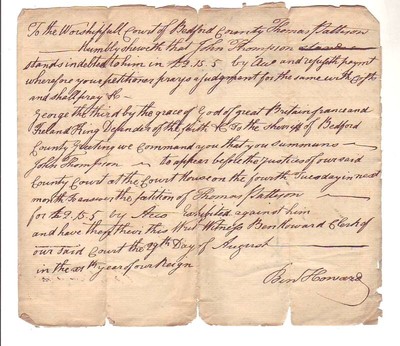 To the Worshipfull Court of Bedford County Thomas Pattison
Humbly sheweth that John Thompson
stands indebted to him in £2.15.5 by Acct and refuseth paymt
wherefore your petitioner prays a Judgment for the same with Costs
and shall pray &c
George the third by the grace of God of great Britain france and
Ireland King Defender of the faith &c To the Sheriff of Bedford
County Greeting we Command you that you summons
John Thompson to appear before the Justices of our said
County Court at the Court House on the fourth Tuesday in next
month to answer the petition of Thomas Pattison
for £2.15.5 by Acco exhibited against him
and have then there this Writ Witness Ben Howard Clerk of
our said Court the 29th Day of August
in the year of our Reign
Ben Howard